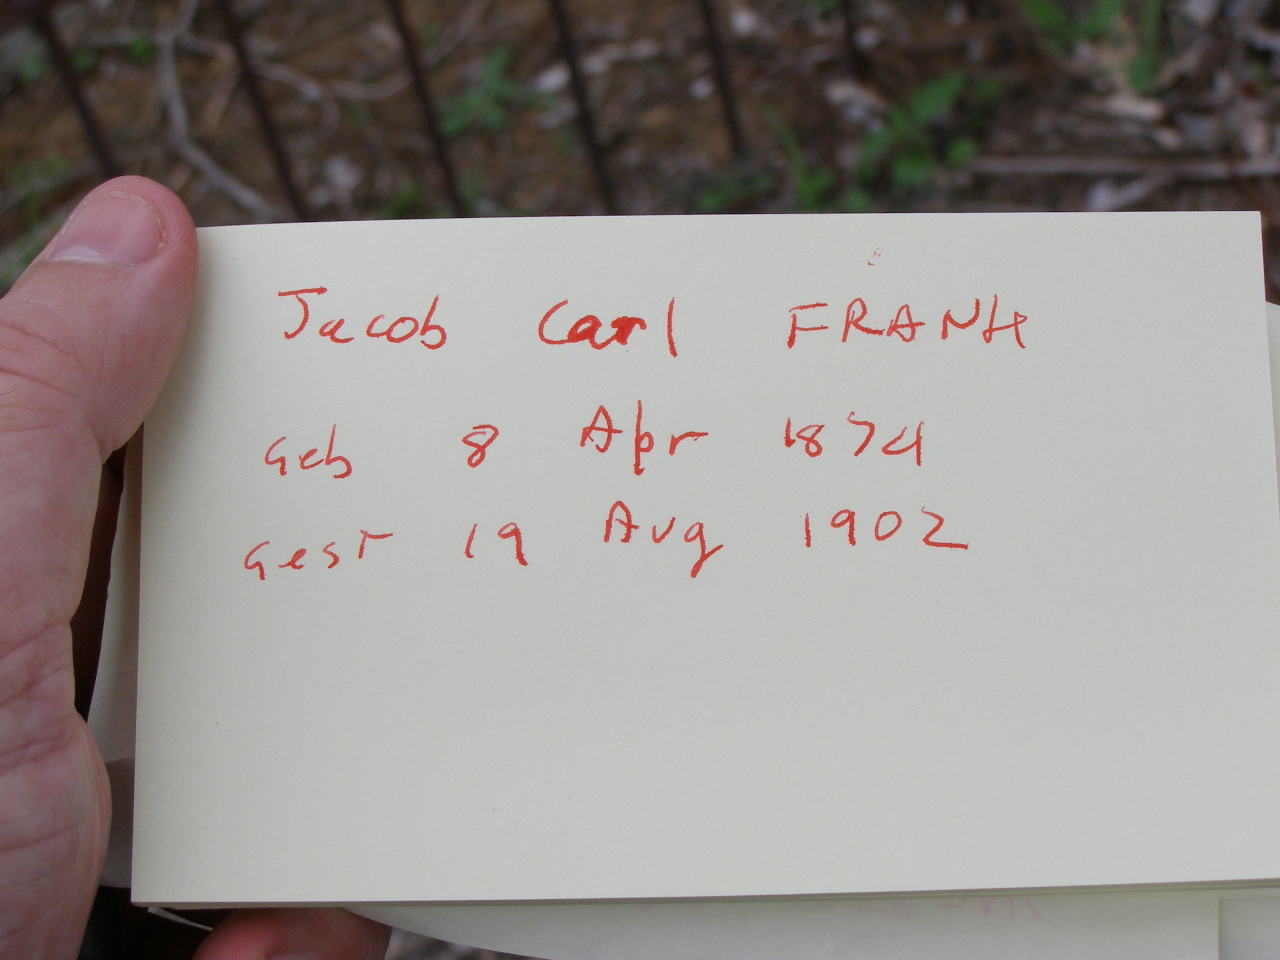 Jacob Carl FRANK
Geb 8 Apr 1874
Gest 19 Aug 1902